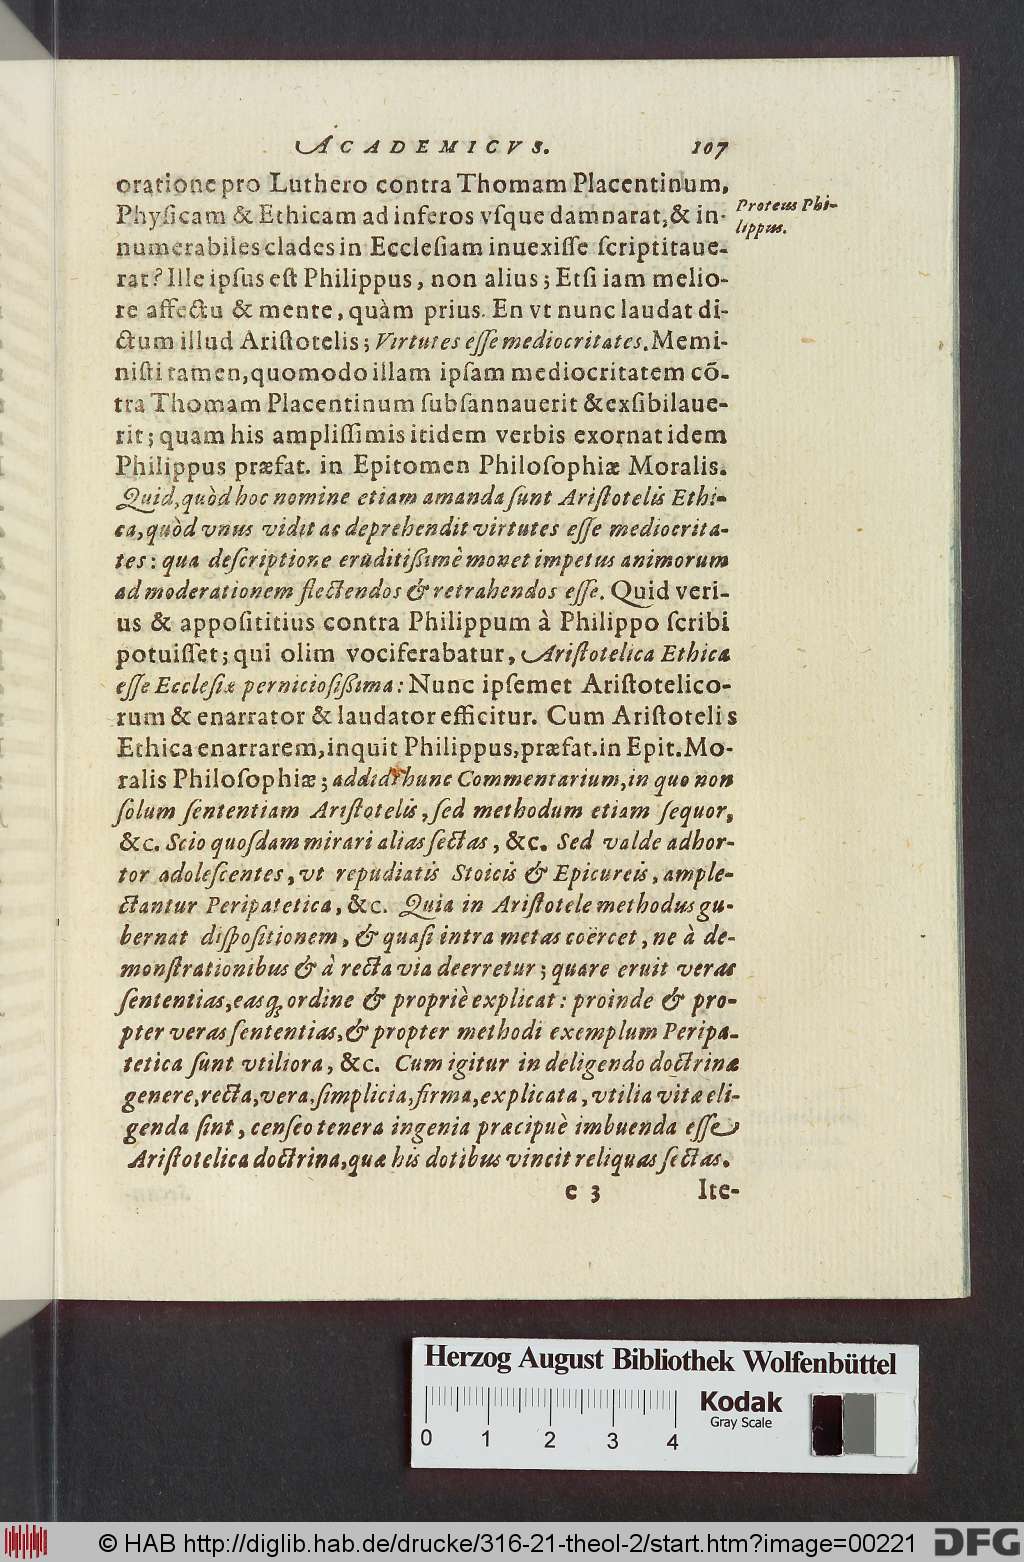 ACADEMICVS. 107
oratione pro Luthero contra Thomam Placentinum,
Phyſicam & Ethicam ad inferos vſque damnarat, & in-
Proteus Phi-
lippus.
numerabiles clades in Eccleſiam inuexiſſe ſcriptitaue-
rat? Ille ipſus eſt Philippus, non alius; Etſi iam melio-
re affectu & mente, quàm prius. En vt nunc laudat di-
ctum illud Ariſtotelis; Virtutes eſſe mediocritates. Memi-
niſti tamen, quomodo illam ipſam mediocritatem cō-
tra Thomam Placentinum ſubſannauerit & exſibilaue-
rit; quam his ampliſſimis itidem verbis exornat idem
Philippus præfat. in Epitomen Philoſophiæ Moralis.
Quid, quòd hoc nomine etiam amanda ſunt Ariſtotelis Ethi-
ca, quòd vnus vidit ac deprehendit virtutes eſſe mediocrita-
tes: qua deſcriptione eruditißimè monet impetus animorum
ad moderationem flectendos & retrahendos eſſe. Quid veri-
us & appoſititius contra Philippum à Philippo ſcribi
potuiſſet; qui olim vociferabatur, Ariſtotelica Ethica
eſſe Eccleſiæ pernicioſißima: Nunc ipſemet Ariſtotelico-
rum & enarrator & laudator efficitur. Cum Ariſtotelis
Ethica enarrarem, inquit Philippus, præfat. in Epit. Mo-
ralis Philoſophiæ; addidi hunc Commentarium, in quo non
ſolum ſententiam Ariſtotelis, ſed methodum etiam ſequor,
&c. Scio quoſdam mirari alias ſectas, &c. Sed valde adhor-
tor adoleſcentes, vt repudiatis Stoicis & Epicureis, ample-
ctantur Peripatetica, &c. Quia in Ariſtotele methodus gu-
bernat diſpoſitionem, & quaſi intra metas coërcet, ne à de-
monſtrationibus & à recta via deerretur; quare eruit veras
ſententias, easq́; ordine & propriè explicat: proinde & pro-
pter veras ſententias, & propter methodi exemplum Peripa-
tetica ſunt vtiliora, &c. Cum igitur in deligendo doctrinæ
genere, recta, vera, ſimplicia, firma, explicata, vtilia vitæ eli-
genda ſint, cenſeo tenera ingenia præcipuè imbuenda eſſe
Ariſtotelica doctrina, quæ his dotibus vincit reliquas ſectas.
e 3 Ite-
Herzog August Bibliothek Wolfenbüttel
0 1 2 3 4
Kodak
Gray Scale
© HAB http://diglib.hab.de/drucke/316-21-theol-2/start.htm?image=00221
DFG